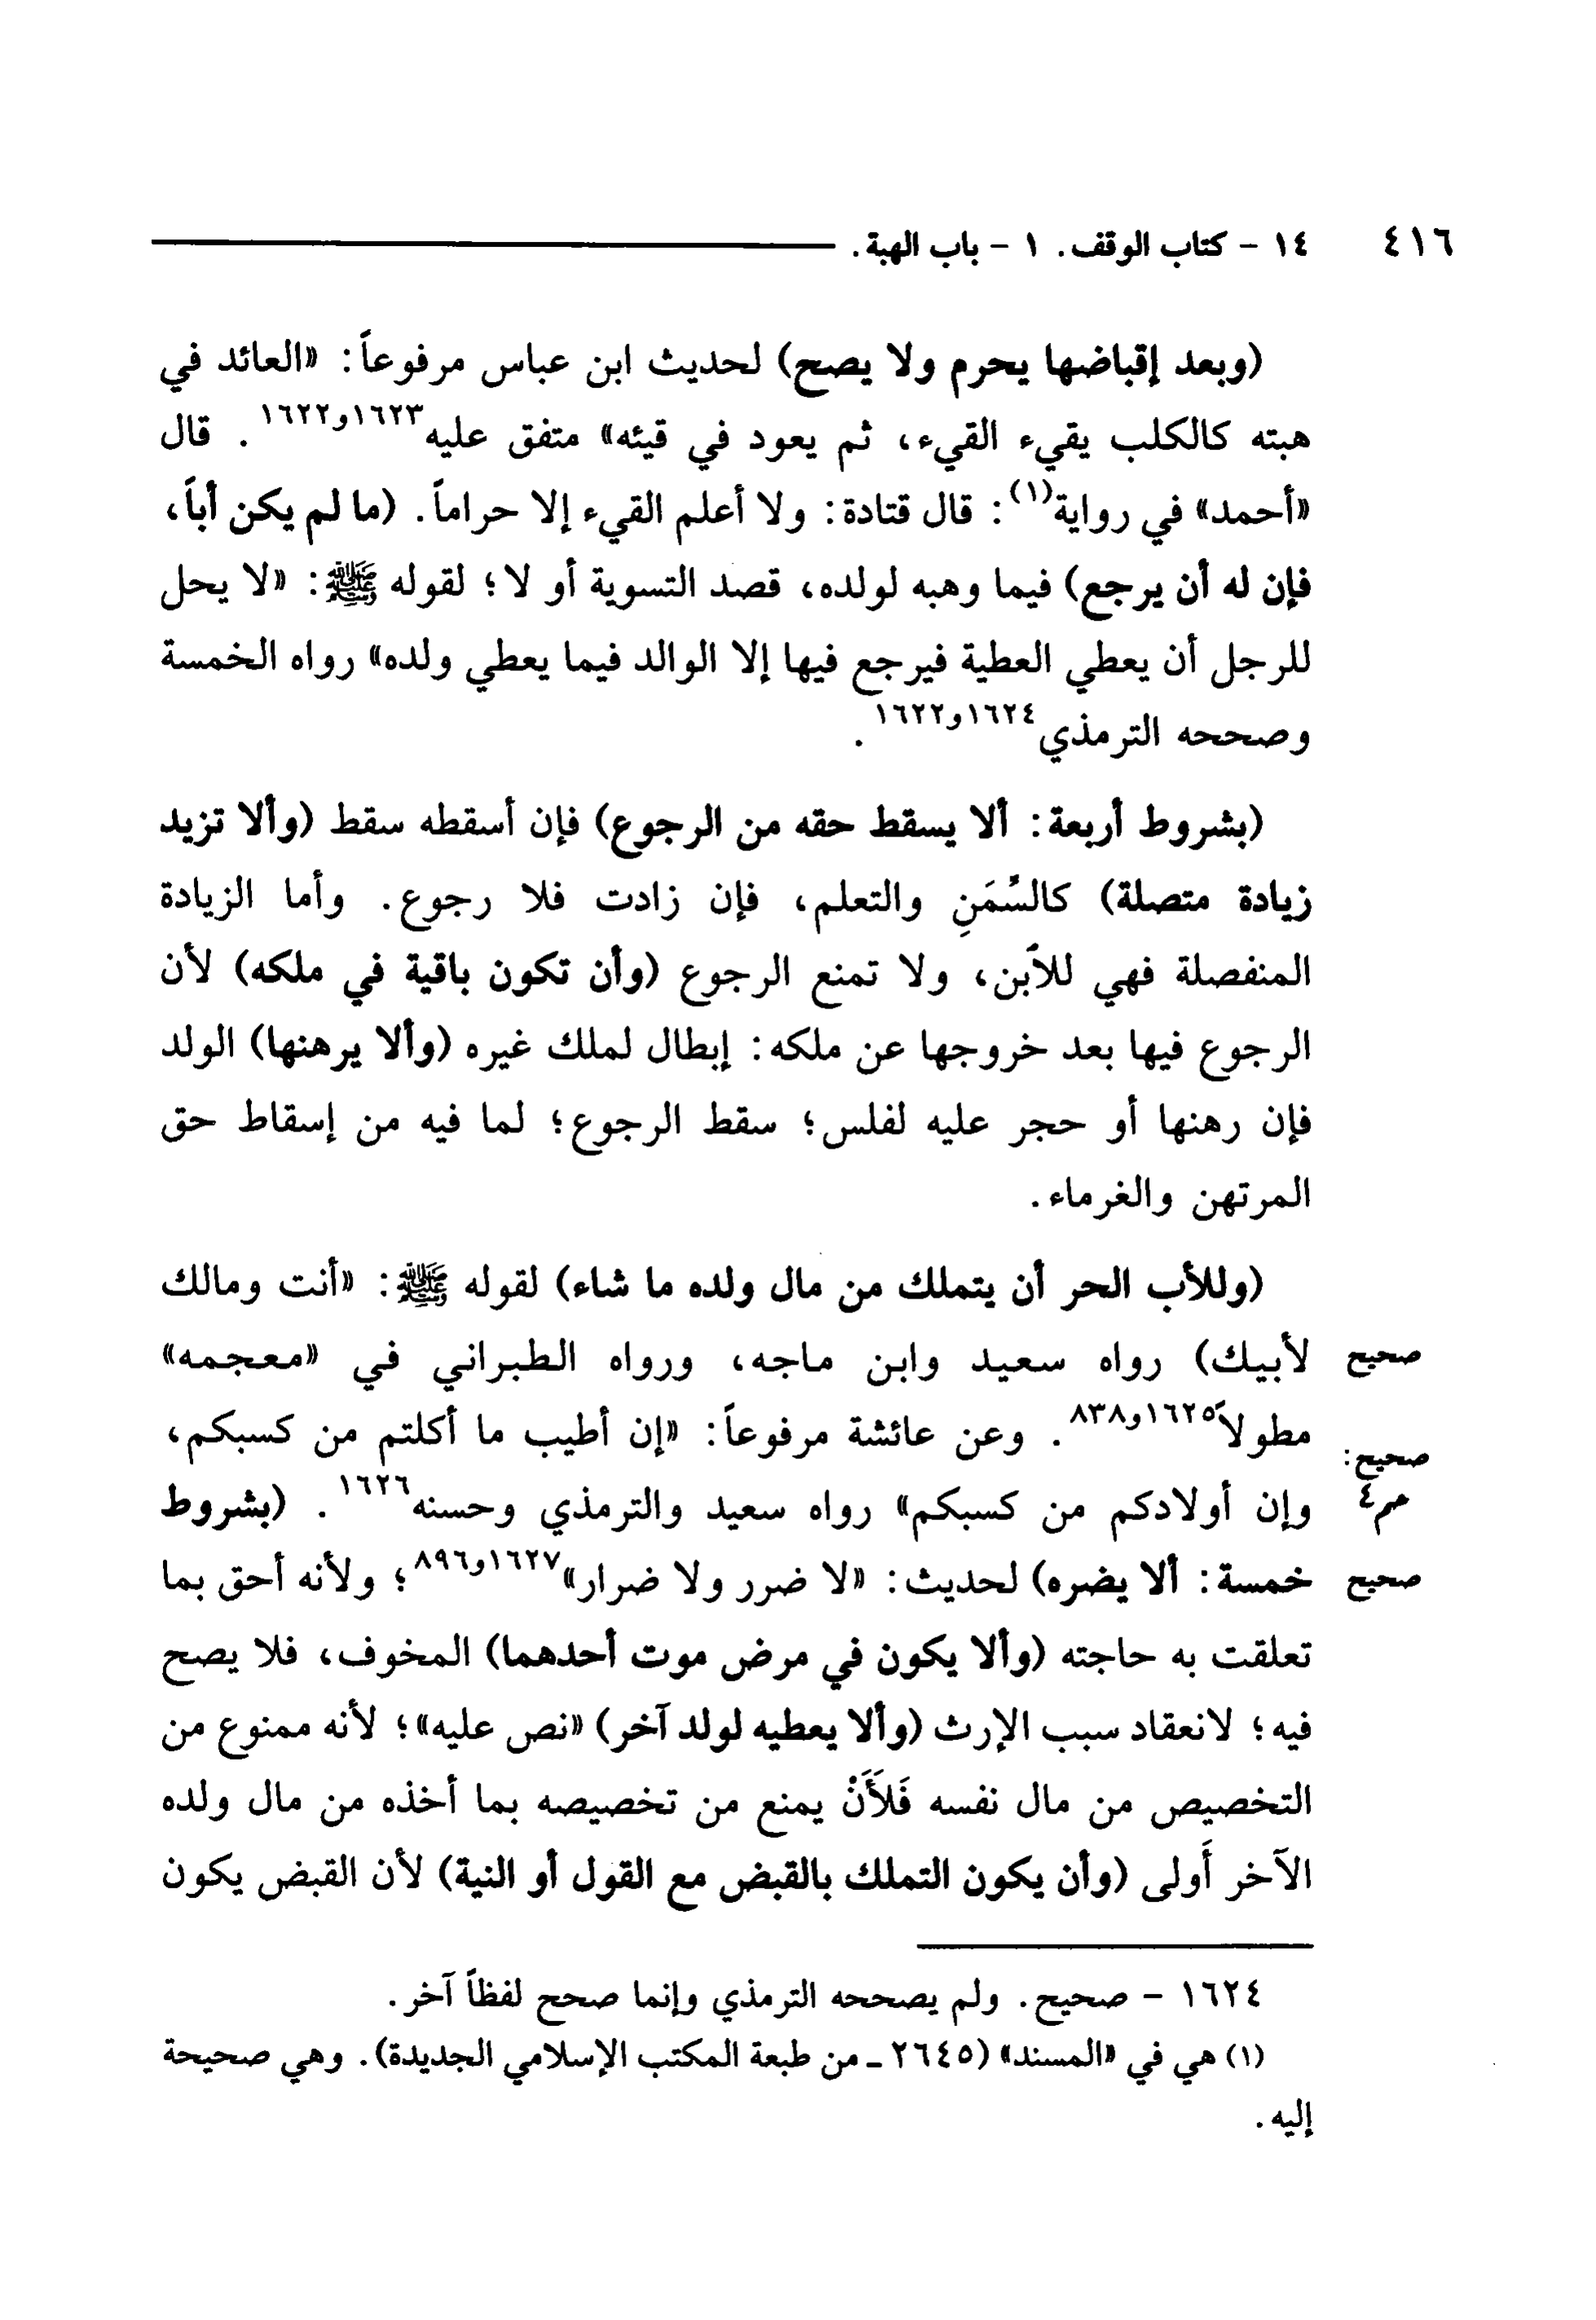 ٤١٦ ١٤ - كتاب الوقف. ١ - باب الهبة.
(وبعد إقباضها يحرم ولا يصح) لحديث ابن عباس مرفوعاً: «العائد في
هبته كالكلب يقيء القيء، ثم يعود في قيئه» متفق عليه١٦٢٣و١٦٢٢. قال
«أحمد» في رواية(١): قال قتادة: ولا أعلم القيء إلا حراماً. (ما لم يكن أباً،
فإن له أن يرجع) فيما وهبه لولده، قصد التسوية أو لا؛ لقوله ﷺ: «لا يحل
للرجل أن يعطي العطية فيرجع فيها إلا الوالد فيما يعطي ولده» رواه الخمسة
وصححه الترمذي١٦٢٤و١٦٢٢.
(بشروط أربعة: ألا يسقط حقه من الرجوع) فإن أسقطه سقط (وألا تزيد
زيادة متصلة) كالسِّمَنِ والتعلم، فإن زادت فلا رجوع. وأما الزيادة
المنفصلة فهي للأبن، ولا تمنع الرجوع (وأن تكون باقية في ملكه) لأن
الرجوع فيها بعد خروجها عن ملكه: إبطال لملك غيره (وألا يرهنها) الولد
فإن رهنها أو حجر عليه لفلس؛ سقط الرجوع؛ لما فيه من إسقاط حق
المرتهن والغرماء.
(وللأب الحر أن يتملك من مال ولده ما شاء) لقوله ﷺ: «أنت ومالك
صحيح لأبيك) رواه سعيد وابن ماجه، ورواه الطبراني في «معجمه»
مطولاً١٦٢٥و٨٣٨. وعن عائشة مرفوعاً: «إن أطيب ما أكلتم من كسبكم،
صحيح:
وإن أولادكم من كسبكم» رواه سعيد والترمذي وحسنه١٦٢٦. (بشروط
صحيح خمسة: ألا يضره) لحديث: «لا ضرر ولا ضرار»١٦٢٧و٨٩٦؛ ولأنه أحق بما
تعلقت به حاجته (وألا يكون في مرض موت أحدهما) المخوف، فلا يصح
فيه؛ لانعقاد سبب الإرث (وألا يعطيه لولد آخر) «نص عليه»؛ لأنه ممنوع من
التخصيص من مال نفسه فَلَأَنْ يمنع من تخصيصه بما أخذه من مال ولده
الآخر أَولى (وأن يكون التملك بالقبض مع القول أو النية) لأن القبض يكون
١٦٢٤ - صحيح. ولم يصححه الترمذي وإنما صحح لفظاً آخر.
(١) هي في «المسند» (٢٦٤٥ - من طبعة المكتب الإسلامي الجديدة). وهي صحيحة
إليه.